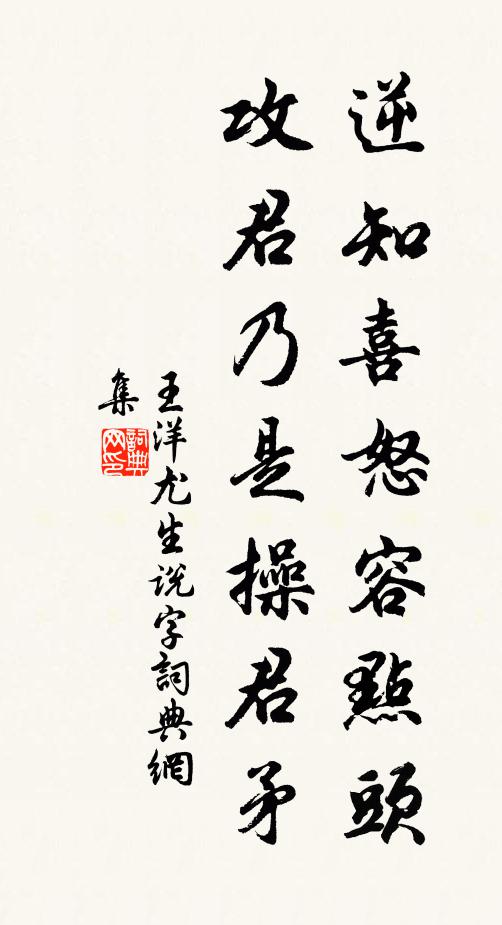 逆知喜怒容點頭
攻君乃是操君矛
王洋尤生说字詞典網
集
詞典
网印